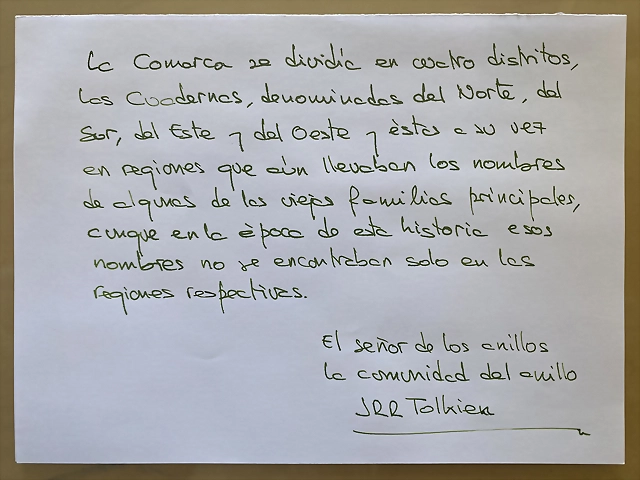 La Comarca se dividía en cuatro distritos,
las Cuadernas, denominadas del Norte, del
Sur, del Este y del Oeste y éstas a su vez
en regiones que aún llevaban los nombres
de algunas de las viejas familias principales,
aunque en la época de esta historia esos
nombres no se encontraban solo en las
regiones respectivas.
El señor de los anillos
la comunidad del anillo
JRR Tolkien